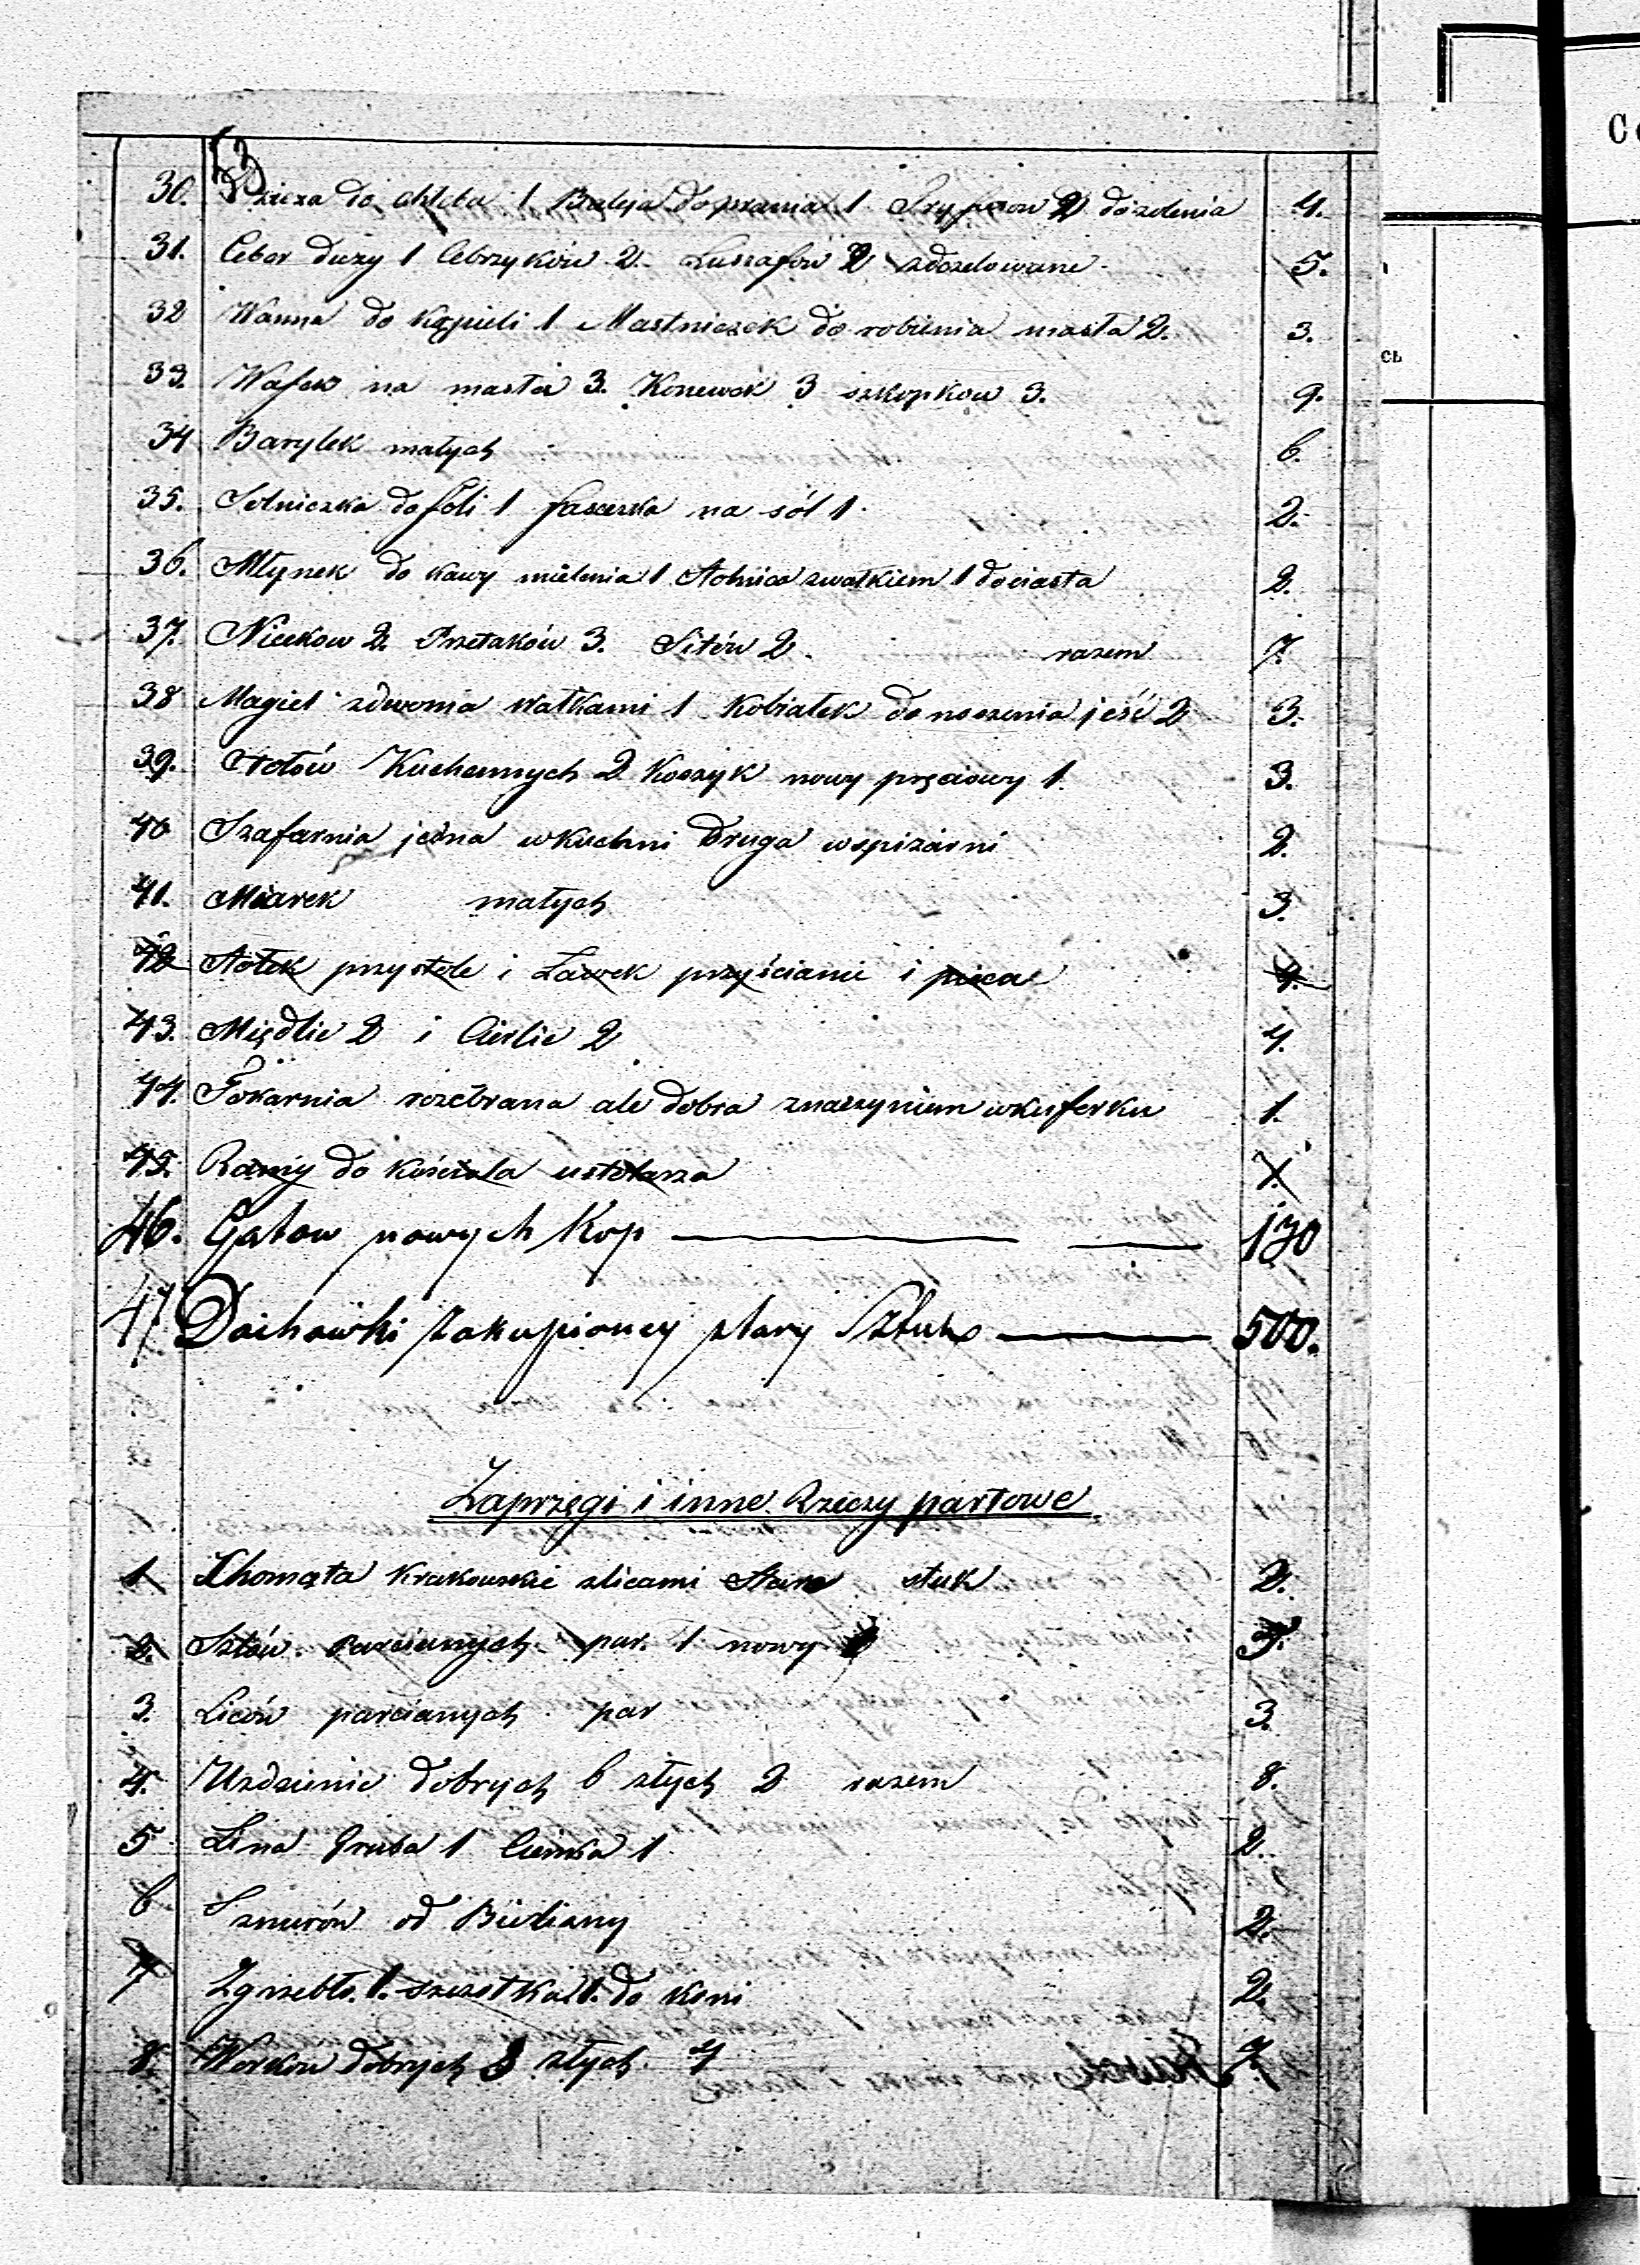 30. Dzieża do chleba 1 Balija do prania 1 2 do zolenia 4.
31. Ceber duży 1 Cebrzyków 2. 2 5.
32 Wanna do kąpieli 1 Maśniczek do robienia masła 2. 3.
33. na masła 3. Konewek 3 szkopkow 3. 9.
34 Baryłek małych 6.
35. Solniczka do soli 1 faseczka na sól 1. 2.
36. Młynek do kawy mielenia 1 Stolnica zwałkiem 1 do ciasta 2.
37. Niecekow 2. Przetaków 3. Sitów 2. razem 7.
38 Magiel zdwoma wałkami 1 Kobiałek do noszenia jeść 2 3.
39. Stołów Kuchennych 2 Koszyk nowy pręciowy 1. 3.
40 Szafarnia jedna wkuchni Druga wspiżarni 2.
41. Miarek małych 3.
42 Stołek przystole i Ławek przyścianie i pieca 4.
43. Międlic 2 i Cierlic 2 4.
44. Tokarnia rozebrana ale dobra znaczyniem wkuferku 1.
45. Ramy do kościoła ustolarza 1.
46. Gątow nowych Kop 130
47. Dachówki zakupioney stary Sztuk 500.
Zaprzęgi i inne Rzeczy partowe
1 Chomąta Krakowskie zlicami Stare stuk 2.
2. Szlów Parcianych par. 1 nowy 3.
3. Liców parcianych par 3.
4. Uzdzienic dobrych 6 złych 2 razem 8.
5 Lina Gruba 1 Cienka 1 2.
6 Sznurów od Bielizny 2.
7 Zgrzebło. 1. szczotka 1. do koni 2.
8. Workow dobrych 3 złych 4 7.